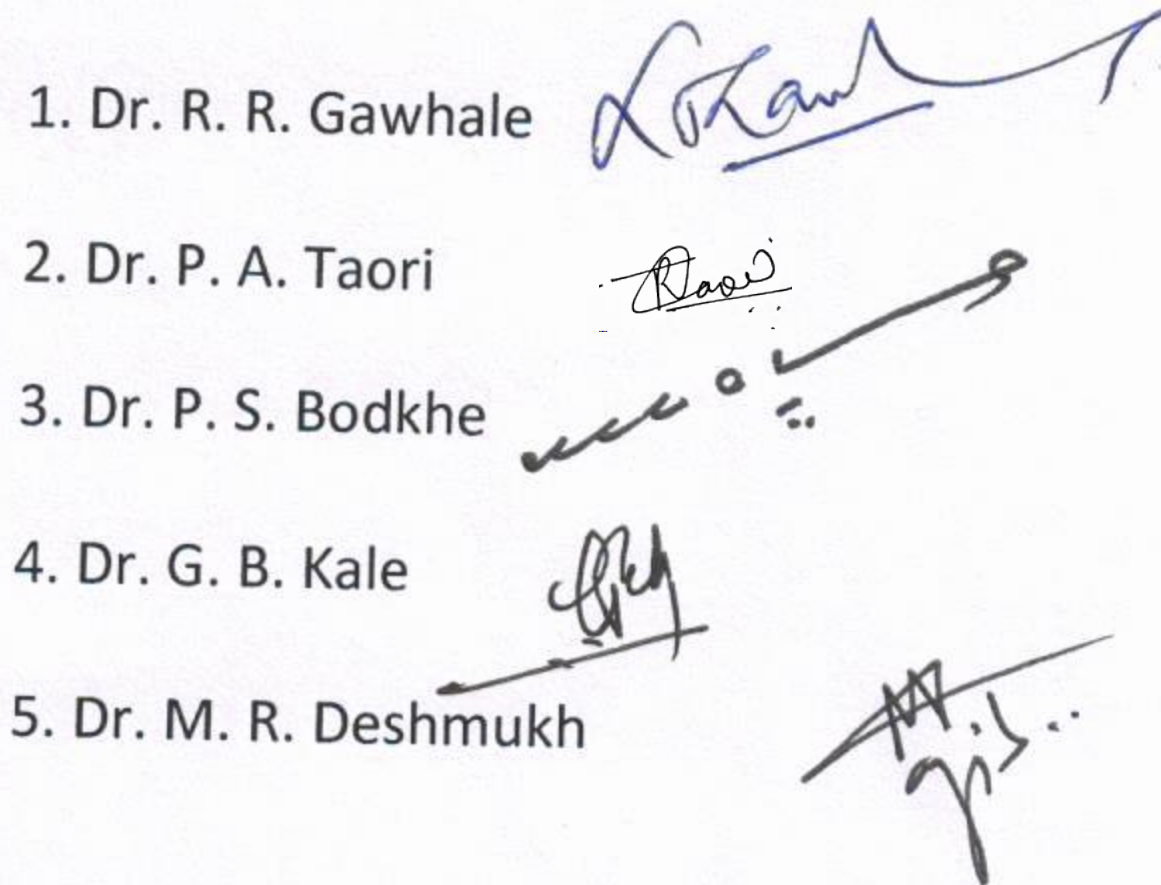 1. Dr. R. R. Gawhale
2. Dr. P. A. Taori
3. Dr. P. S. Bodkhe
4. Dr. G. B. Kale
5. Dr. M. R. Deshmukh